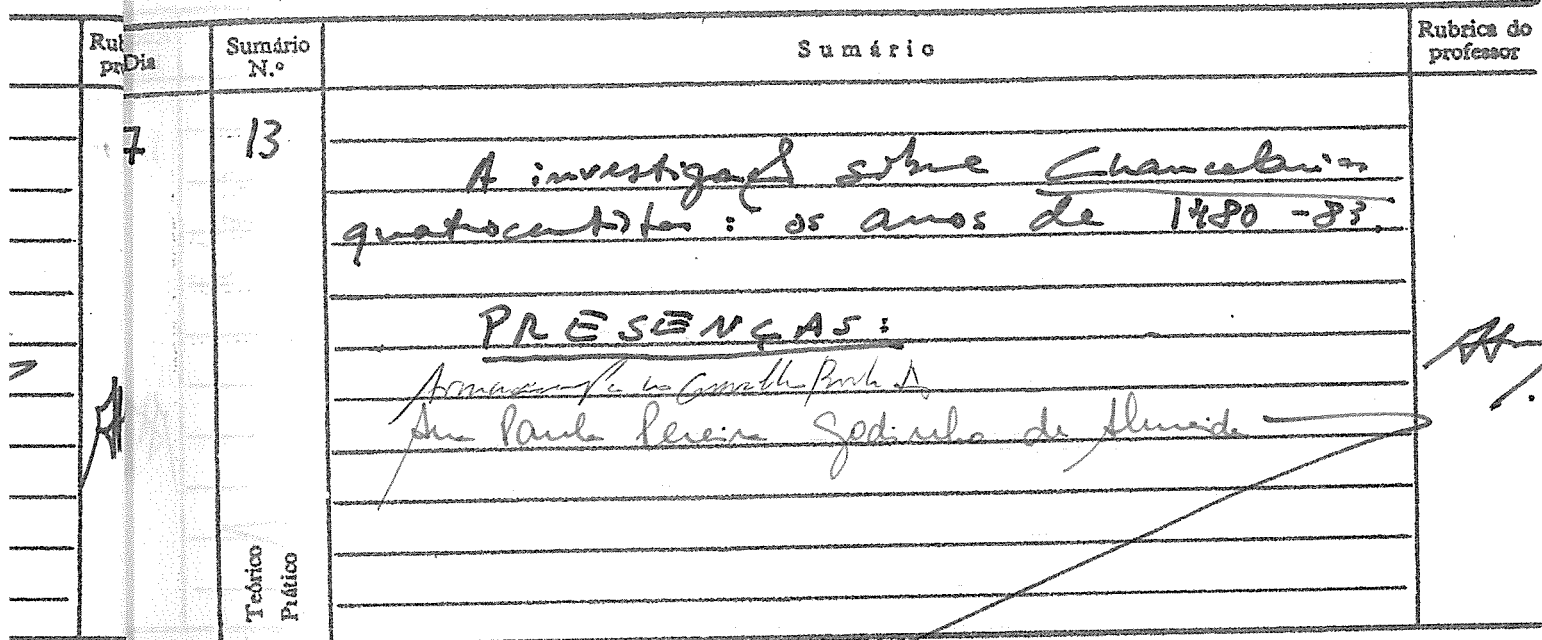 Rub
pro
Dia
Sumário
N.º
Sumário
Rubrica do
professor
7
13
A investigação sôbre Chancelarias
quatrocentistas : os anos de 1480-83.
PRESENÇAS :
Ana Paula Pereira Godinho de Almeida
Teórico
Prático